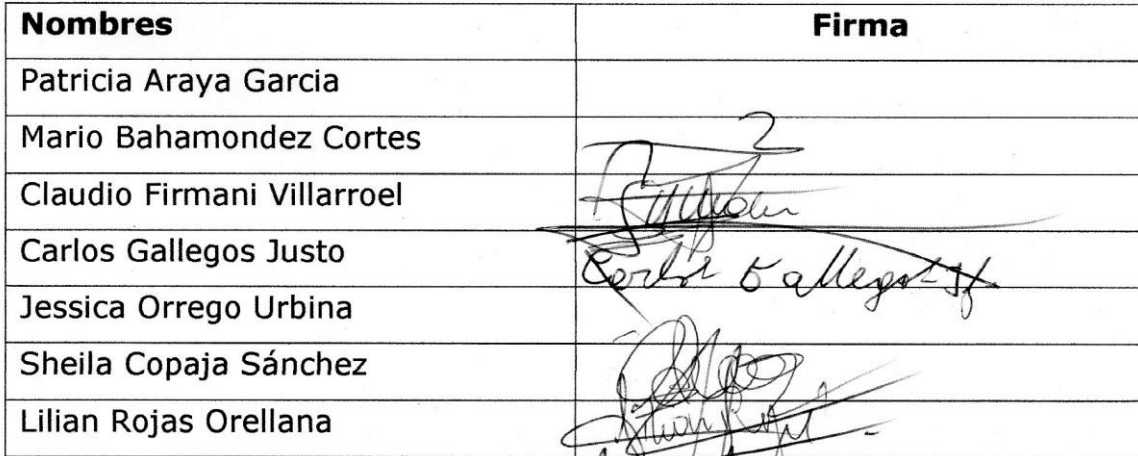 Nombres Firma
Patricia Araya Garcia
Mario Bahamondez Cortes
Claudio Firmani Villarroel
Carlos Gallegos Justo Carlos Gallegos
Jessica Orrego Urbina
Sheila Copaja Sánchez
Lilian Rojas Orellana